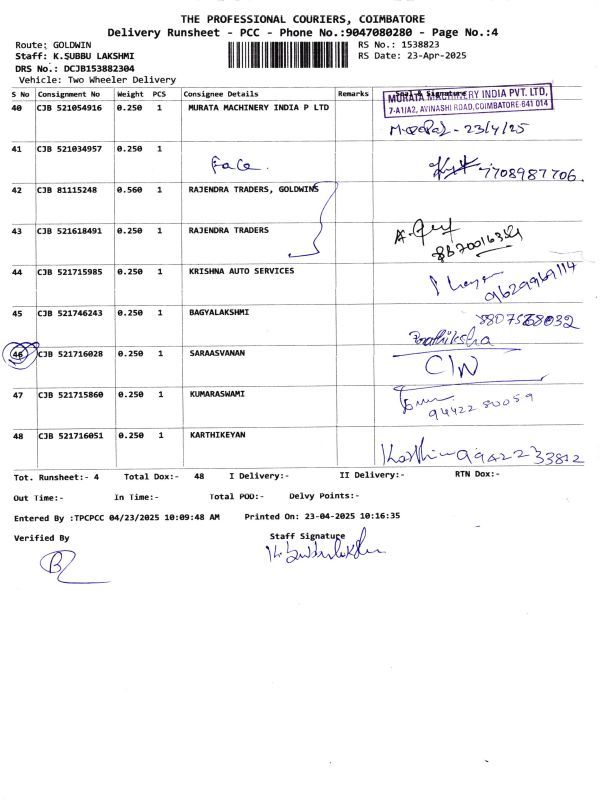 THE PROFESSIONAL COURIERS, COIMBATORE
Delivery Runsheet - PCC - Phone No.:9047080280 - Page No.:4
Route: GOLDWIN RS No.: 1538823
Staff: K.SUBBU LAKSHMI RS Date: 23-Apr-2025
DRS No.: DCJB153882304
Vehicle: Two Wheeler Delivery
S No Consignment No Weight PCS Consignee Details Remarks Seal & Signature
MURATA MACHINERY INDIA PVT. LTD,
7-A1/A2, AVINASHI ROAD, COIMBATORE-641 014
40 CJB 521054916 0.250 1 MURATA MACHINERY INDIA P LTD
23/4/25
41 CJB 521034957 0.250 1
Face. 7708987706.
42 CJB 81115248 0.560 1 RAJENDRA TRADERS, GOLDWINS
43 CJB 521618491 0.250 1 RAJENDRA TRADERS
44 CJB 521715985 0.250 1 KRISHNA AUTO SERVICES
9629969114
45 CJB 521746243 0.250 1 BAGYALAKSHMI
46 CJB 521716028 0.250 1 SARAASVANAN
C/W
47 CJB 521715860 0.250 1 KUMARASWAMI
94422 80059
48 CJB 521716051 0.250 1 KARTHIKEYAN
Karthi 9942233812
Tot. Runsheet:- 4 Total Dox:- 48 I Delivery:- II Delivery:- RTN Dox:-
Out Time:- In Time:- Total POD:- Delvy Points:-
Entered By :TPCPCC 04/23/2025 10:09:48 AM Printed On: 23-04-2025 10:16:35
Verified By Staff Signature